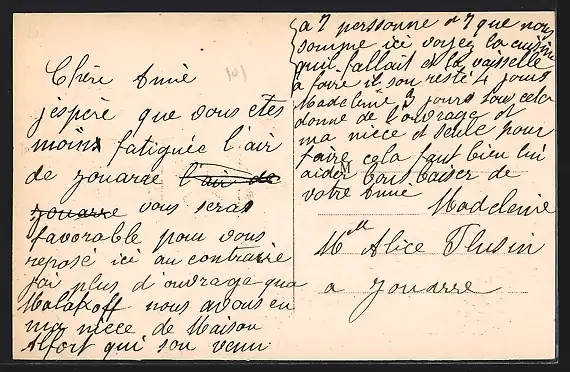 Chère Amie
jespère que vous etes
moins fatiguée l'air
de jouarre l'air de
jouarre vous seras
favorable pour vous
reposé ici au contraire
jai plus d'ouvrage qua
Malakoff nous avons eu
ma niece de Maison
Alfort qui son venu
a 7 perssonne a 7 que nous
somme ici voyez la cuisine
quil fallait et la vaisselle
a faire il son resté 4 jours
Madeleine 3 jours tous cela
donne de l'ouvrage et
ma niece et seule pour
faire cela faut bien lui
aider bons baiser de
votre Amie
Madeleine
Mlle Alice Plusin
a Jouarre
101